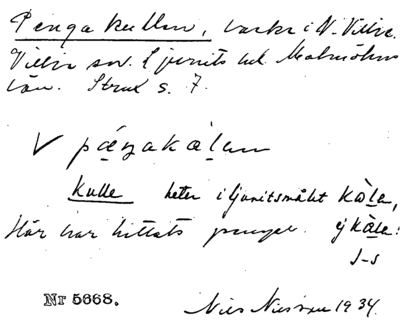 Pengakullen, backe i N. Villie.
Villie sn. Ljunits hd. Malmöhus
län. Strux s. 7.
V páŋakàlen
kulle heter i ljunitsmålet kàle,
Här har hittats pengar. ej kàlle!
J-s
Nr 5668.
Nils Nilsson 1934.